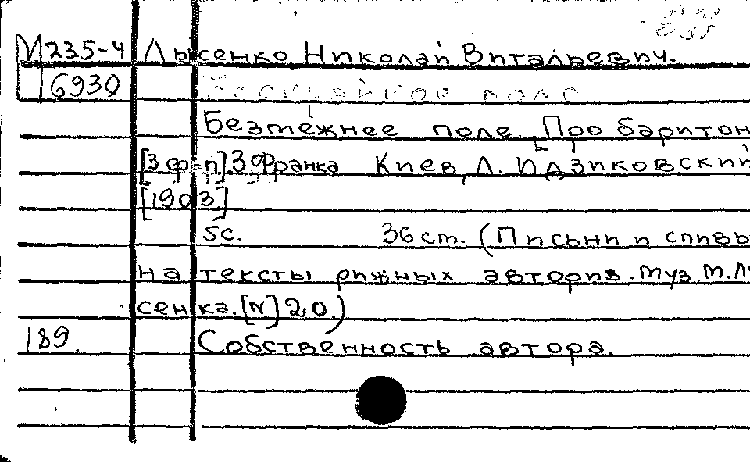 М 235-4 Лысенко Николай Витальевич.
6930
Безмежнее поле. [Про баритон
[З ф-п] З Франка Киев, Л. Идзиковский
[1903]
5с. 36 ст. (Письни и спивы
на тексты рижных авторив. муз. М. Лы
сенка. [N] 20.)
189. Собственность автора.